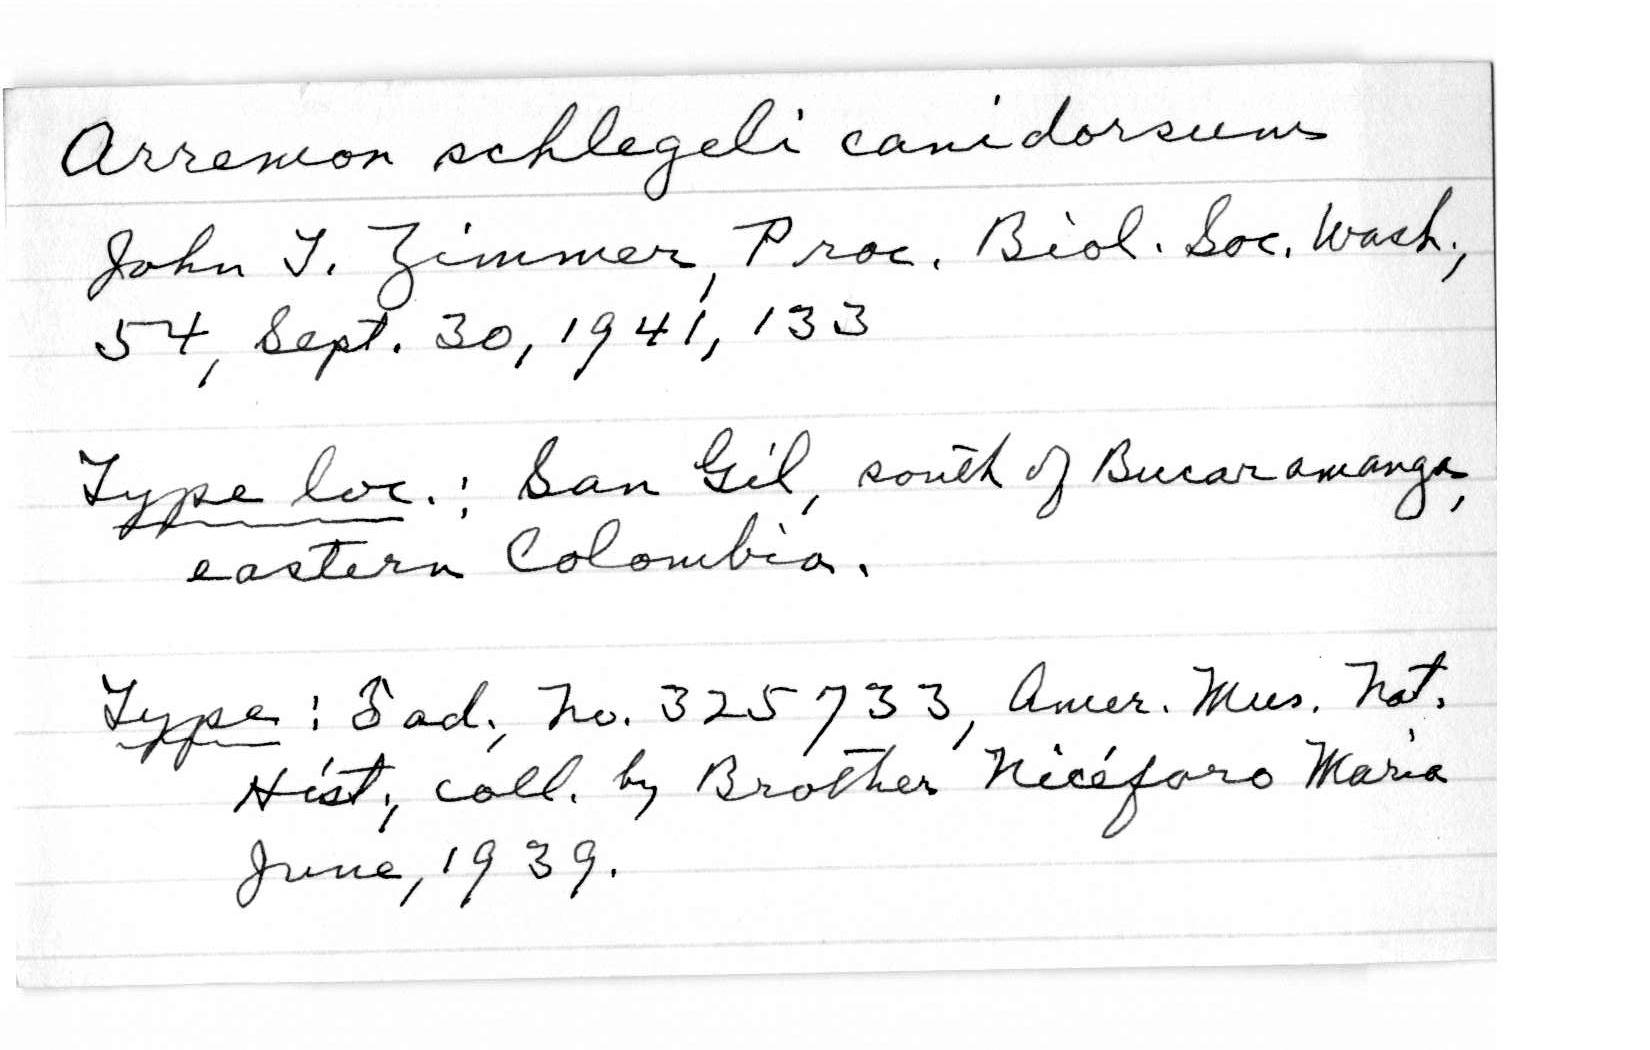 Arremon schlegeli canidorsum
John T. Zimmer, Proc. Biol. Soc. Wash.,
54, Sept. 30, 1941, 133
Type loc.: San Gil, south of Bucaramanga,
eastern Colombia.
Type: ♂ ad., No. 325733, Amer. Mus. Nat.
Hist., coll. by Brother Nicéforo Maria
June, 1939.